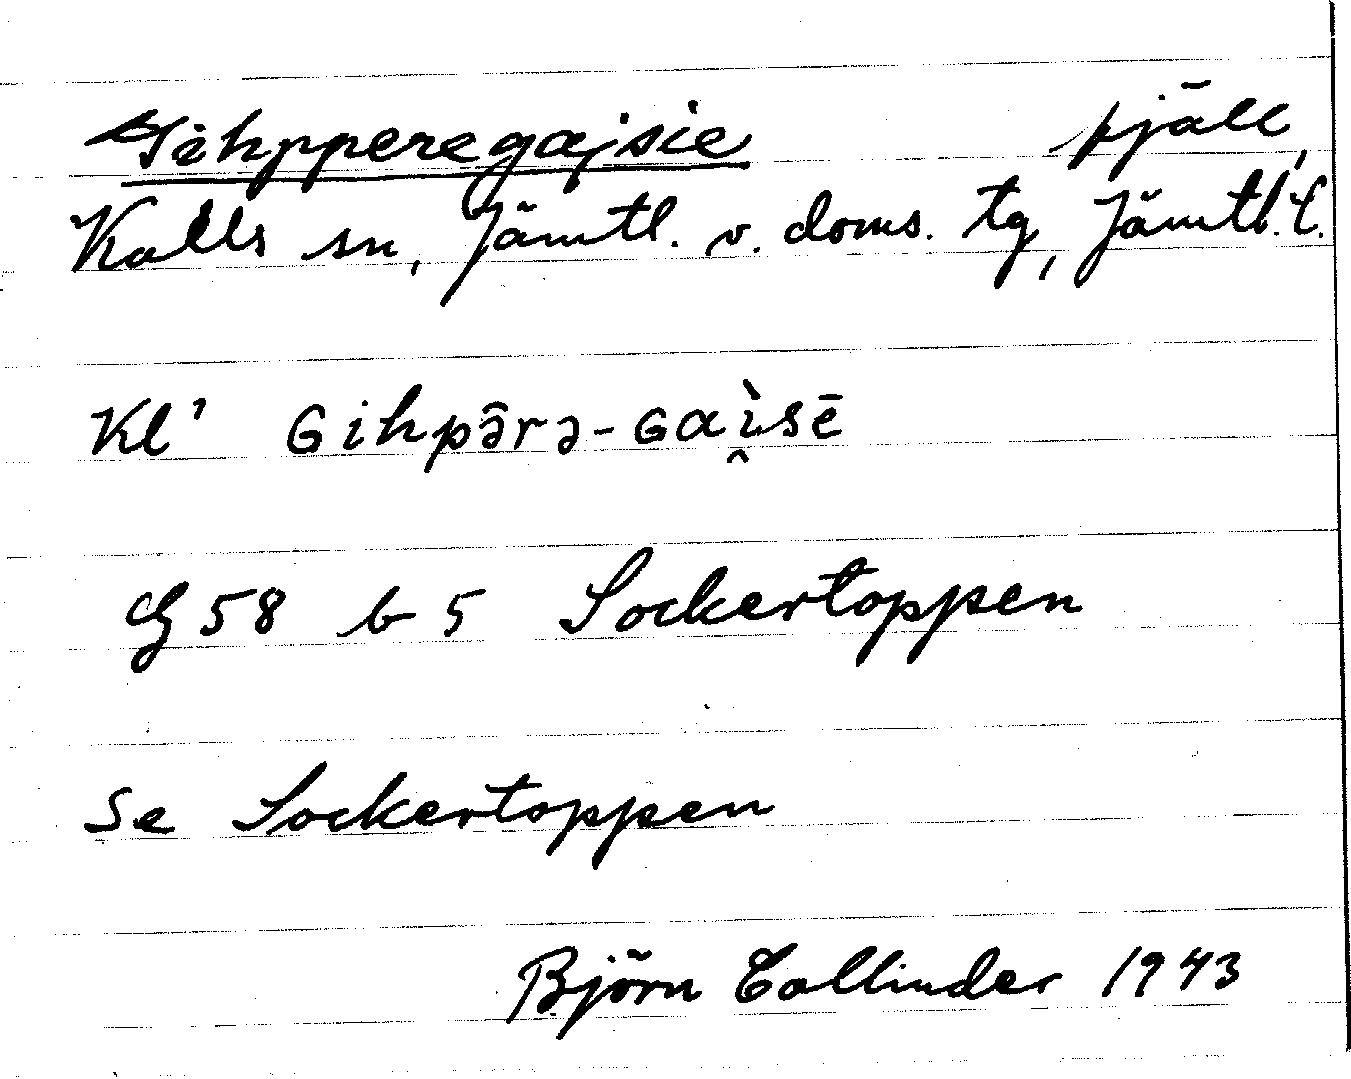 Gihpperegajsie fjäll,
Kalls sn, Jämtl. v. doms. tg, Jämtl. l.
Kl' Gihpə̂rə-Gaì̯sē
G 58 b 5 Sockertoppen
Se Sockertoppen
Björn Collinder 1943